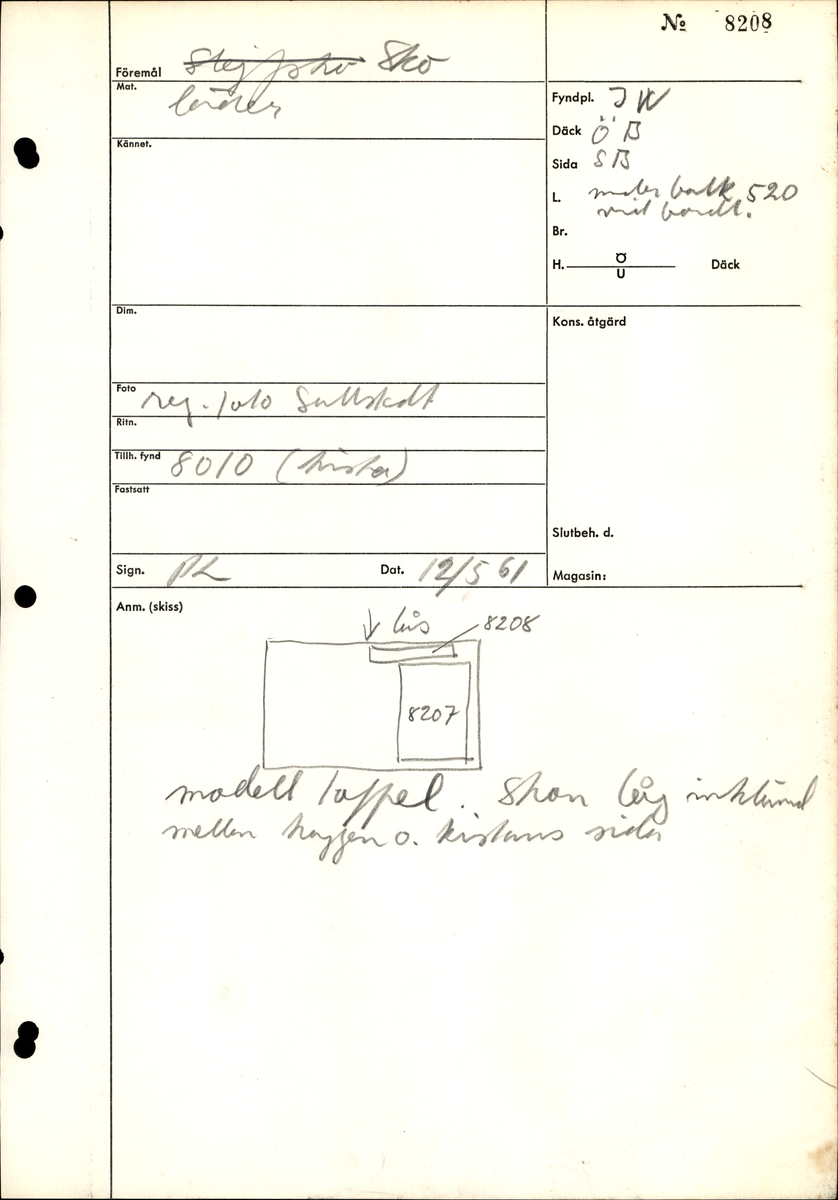 No 8208
Föremål Skö
Mat. läder
Kännet.
Fyndpl. J W
Däck Ö B
Sida SB
L. under balk 520
vid bordl.
Br.
H. Ö Däck
U
Dim.
Kons. åtgärd
Foto reg. foto Gullstedt
Ritn.
Tillh. fynd 8010 (kista)
Fastsatt
Slutbeh. d.
Sign. PL Dat. 12/5 61
Magasin:
Anm. (skiss)
lås 8208
8207
modell toffel. Skon låg inklämd
mellan kaggen o. kistans sida